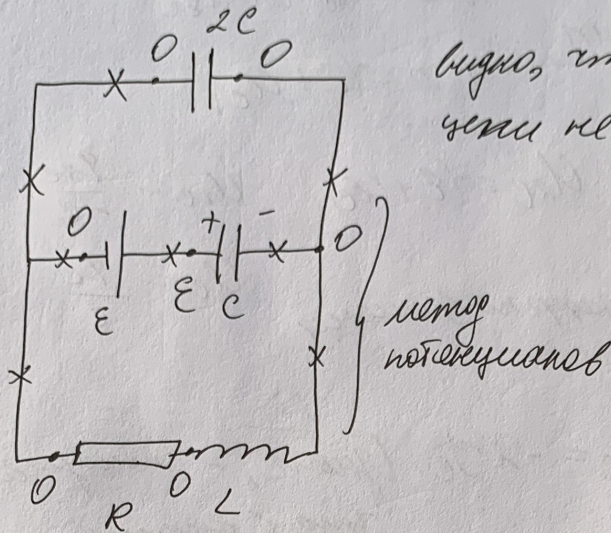 2C
O O
видно, чт
цепи не
O + - O
ε ε C
метод
потенциалов
O O
R L